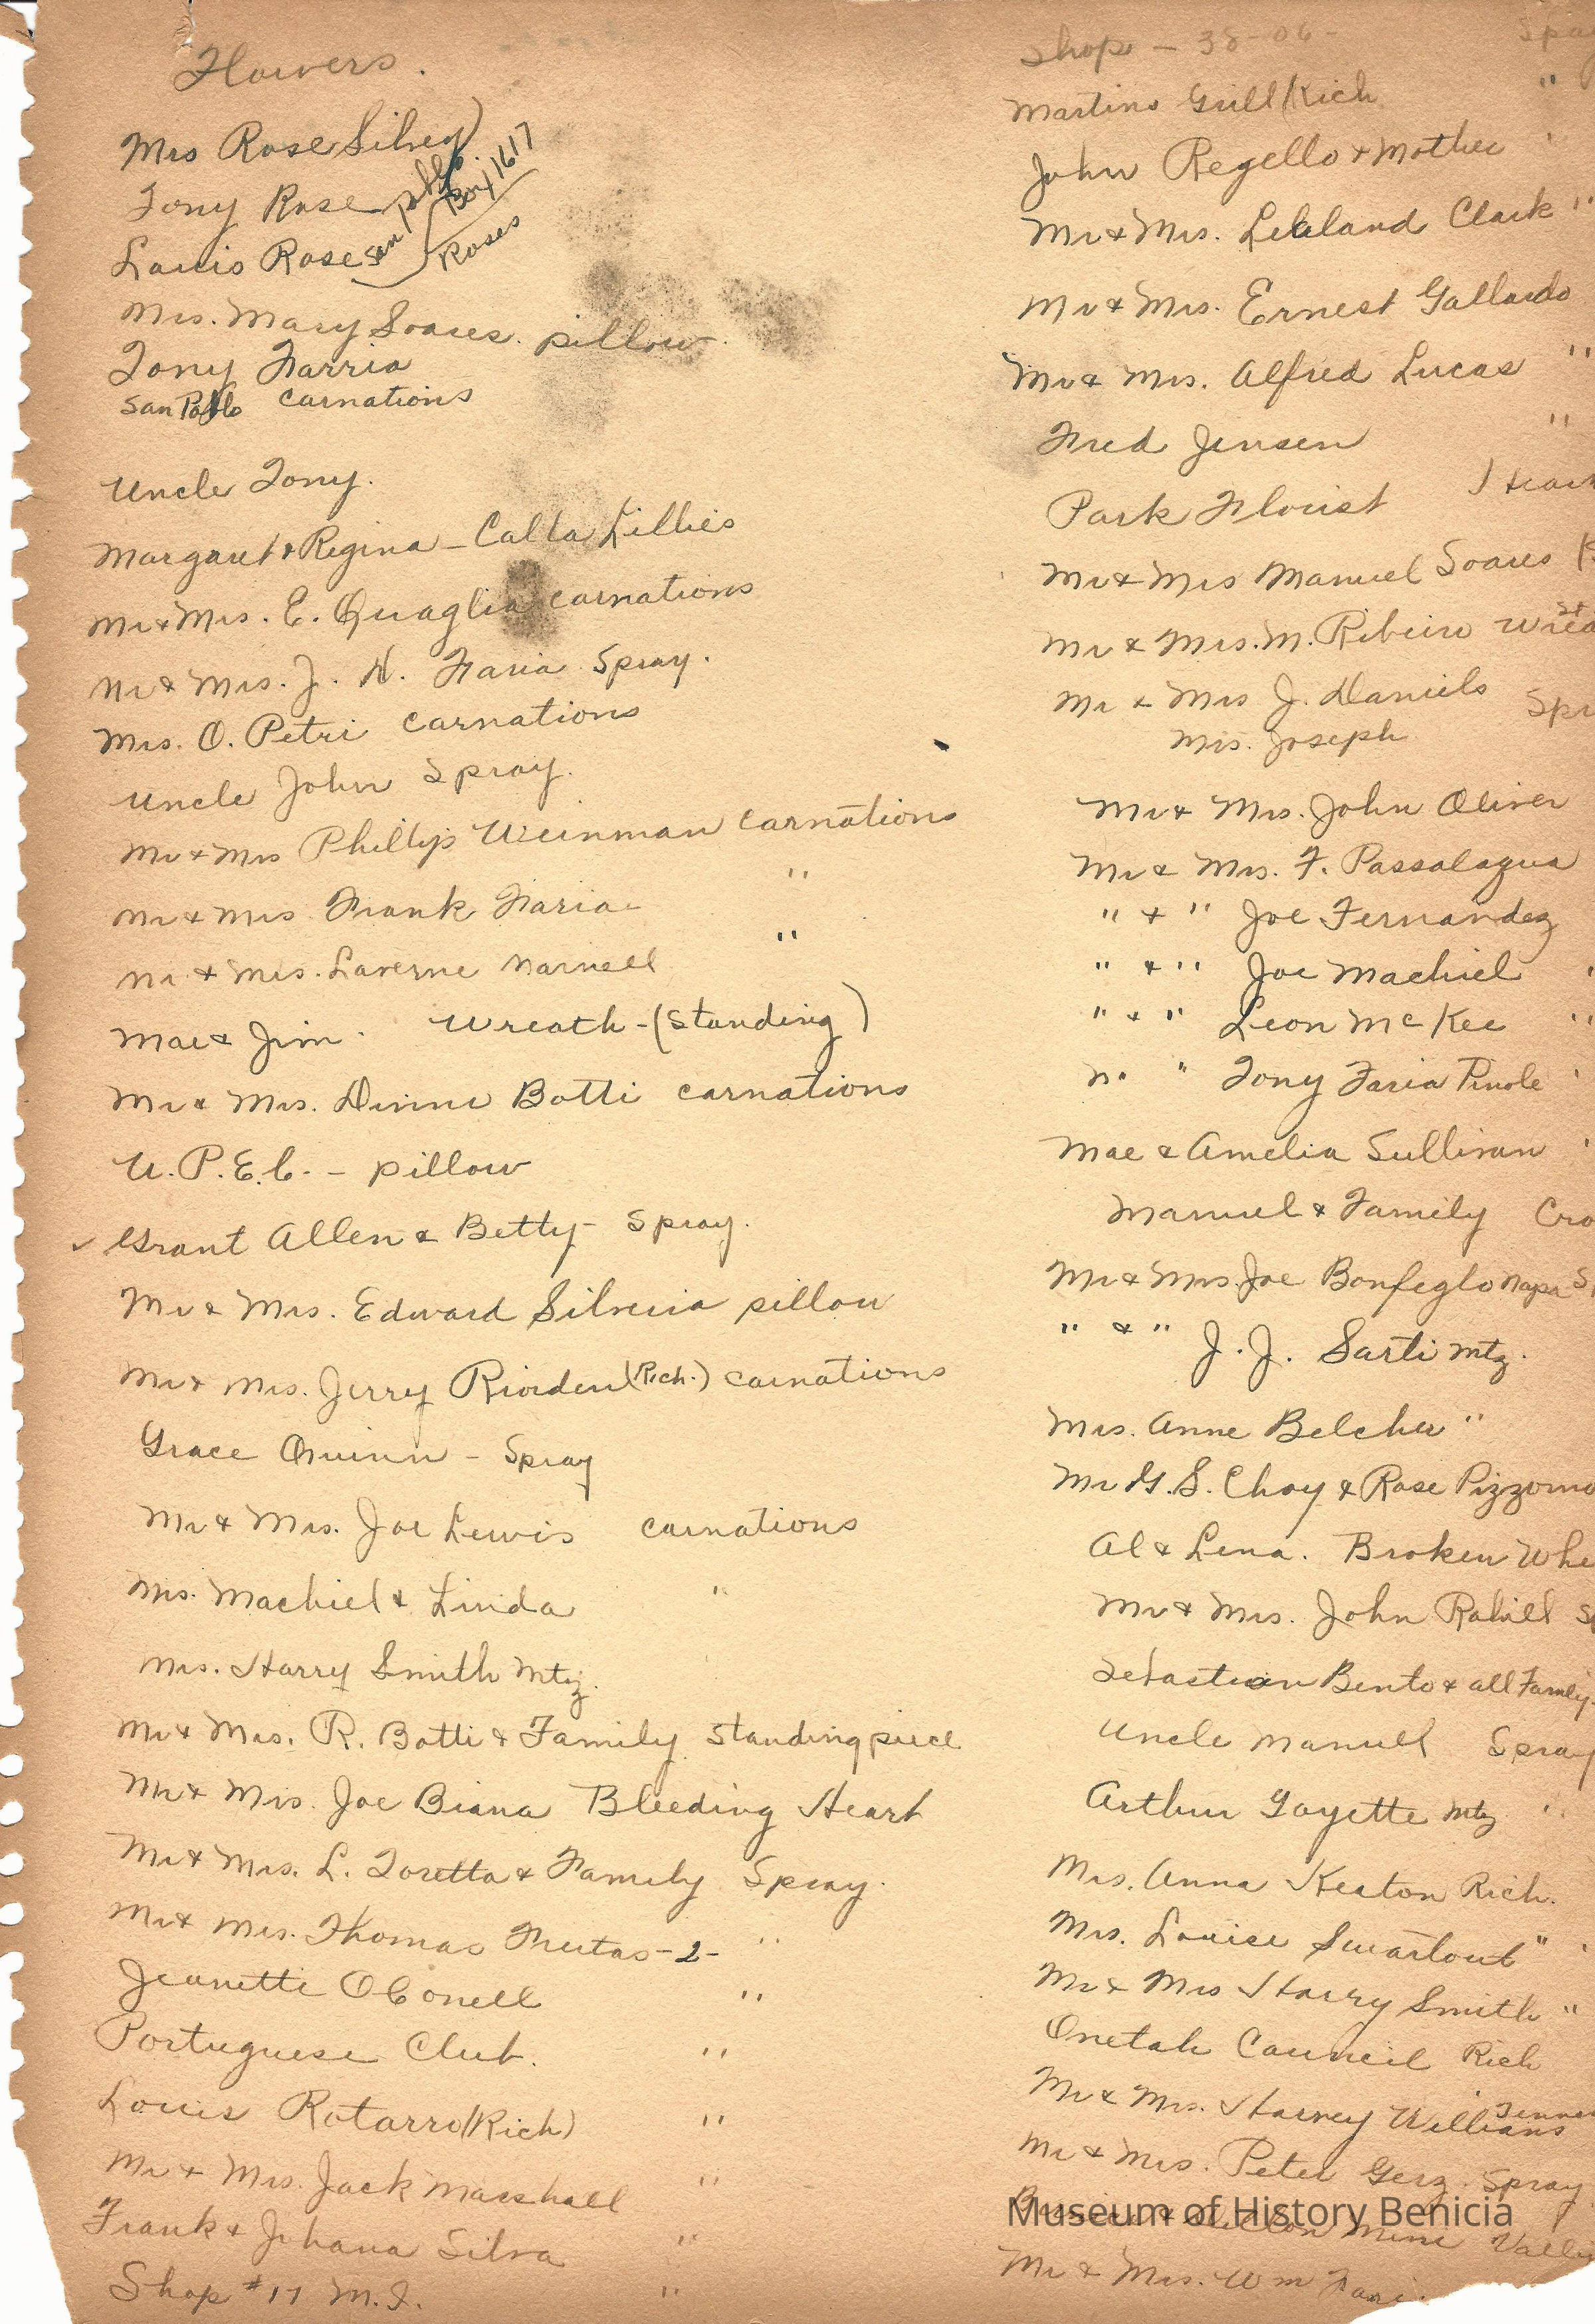 Flowers.
Mrs Rose Silvey)
Tony Rose
Louis Rose
San Pablo
Box 1617
Roses
Mrs. Mary Soares. pillow
Tony Farria
San Pablo carnations
Uncle Tony.
Margaret & Regina - Calla Lillies
Mr & Mrs. E. Quaglia carnations
Mr & Mrs. J. N. Faria Spray.
Mrs. O. Petri carnations
Uncle John Spray.
Mr & Mrs Phillips Weinman carnations
Mr & Mrs Frank Faria "
Mr & Mrs. Laverne "
Mae & Jim. Wreath - (Standing)
Mr & Mrs. Dinni Botti carnations
U.P.E.C. - pillow
✓ Grant Allen & Betty - Spray.
Mr & Mrs. Edward Silveria pillow
Mr & Mrs. Jerry Riorden (Rich.) carnations
Grace Quinn - Spray
Mr & Mrs. Joe Lewis carnations
Mrs. Machiel & Linda "
Mrs. Harry Smith Mtz.
Mr & Mrs. R. Botti & Family Standing piece
Mr & Mrs. Joe Biana Bleeding Heart
Mr & Mrs. L. Toretta & Family Spray.
Mr & Mrs. Thomas Freitas - 2 - "
Jeanette OConell "
Portuguese Club. "
Louis Rotarro (Rich) "
Mr & Mrs. Jack Marshall "
Frank & Johana Silva "
Shop #17 M.I. "
Shop - 38-06 -
Martins Grill (Rich "
John Regello & Mother "
Mr & Mrs. Leland Clark "
Mr & Mrs. Ernest Gallardo
Mr & Mrs. Alfred Lucas "
Fred Jensen "
Park Florist
Mr & Mrs Manuel Soares
Mr & Mrs. M. Ribeiro
Mr & Mrs J. Daniels
Mrs. Joseph
Mr & Mrs. John Oliver
Mr & Mrs. F. Passalaqua
" & " Joe Fernandez
" & " Joe Machiel
" & " Leon McKee "
" " Tony Faria Pinole
Mae & Amelia Sullivan
Manuel & Family
Mr & Mrs. Joe Bonfeglo Napa
" & " J. J. Sarti Mtz.
Mrs. Anne Belcher "
Mr G. S. Choy & Rose Pizzorno
Al & Lena. Broken
Mr & Mrs. John Rahill
Sebastian Bento & all Family.
Uncle Manuel Spray
Arthur Goyette Mtz "
Mrs. Anna Keaton Rich.
Mrs. Louise Swartout "
Mr & Mrs Harry Smith "
Onetah Council Rich
Mr & Mrs. Harvey Williams
Mr & Mrs. Peter Gerz. Spray
Mr & Mrs. Wm
Museum of History Benicia